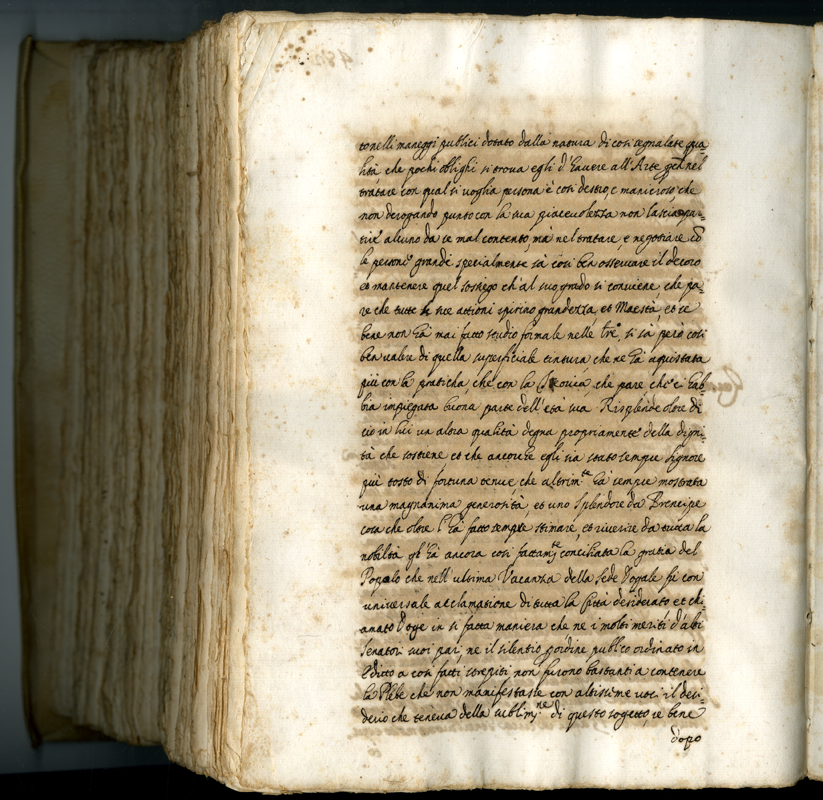 to nelli maneggi publici dotato dalla natura di così segnalate qua=
lità che pochi oblighi si trova egli d'havere all'Arte nel
tratare con qual si voglia persona è così destro, e manieroso, che
non derogando punto con la sua piacevolezza non lascia par=
tire alcuno da se mal contento, mà nel tratare, e negotiare cō
le persone grandi specialmente sà così ben osservare il decoro
et mantenere quel sostego ch'al suo grado si conviene, che pa=
re che tutte le sue attioni spirino grandezza, et Maestà, et se
bene non hà mai fatto studio formale nelle lre, si sà però così
ben valere di quella superficiale tintura che ne hà aquistata
più con la praticha, che con la Teorica, che pare che ci hab=
bia impiegata buona parte dell'età sua Risplende oltre di
ciò in lui un altra qualità degna propriamente della digni=
tà che sostiene et che ancorche egli sia stato sempre signore
più tosto di fortuna tenue, che altrim.te hà sempre mostrata
una magnanima generosità, et uno splendore da Prencipe
cosa che oltre l'hà fatto sempre stimare, et riverire da tutta la
nobiltà gl'hà ancora così fattam.te conciliata la gratia del
Popolo che nell'ultima Vacanza della sede Dogale fù con
universale acclamatione di tutta la Città desiderato et chi=
amato Doge in sì fatta maniera che ne i molti meriti d'altri
Senatori suoi pari, ne il silentio per ordine publico ordinato in
Editto a così fatti strepiti non furono bastanti a contenere
la Plebe che non manifestasse con altissime voci il desi=
derio che teneva della sublim.ne di questo sogetto, se bene
dopo